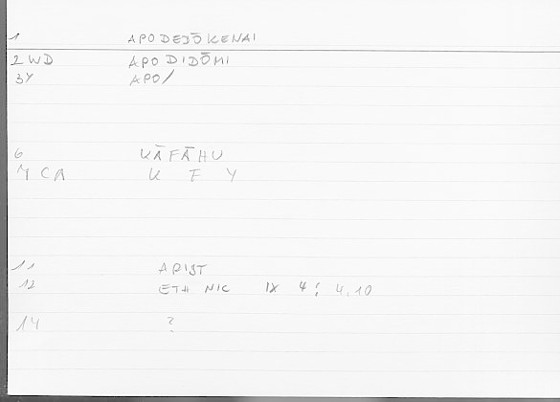 1 APODEDŌKENAI
2 WD APODIDŌMI
3Y APO/
6 KĀFĀHU
7 CA K F Y
11 ARIST
12 ETH NIC IX 4; 4.10
14 ?